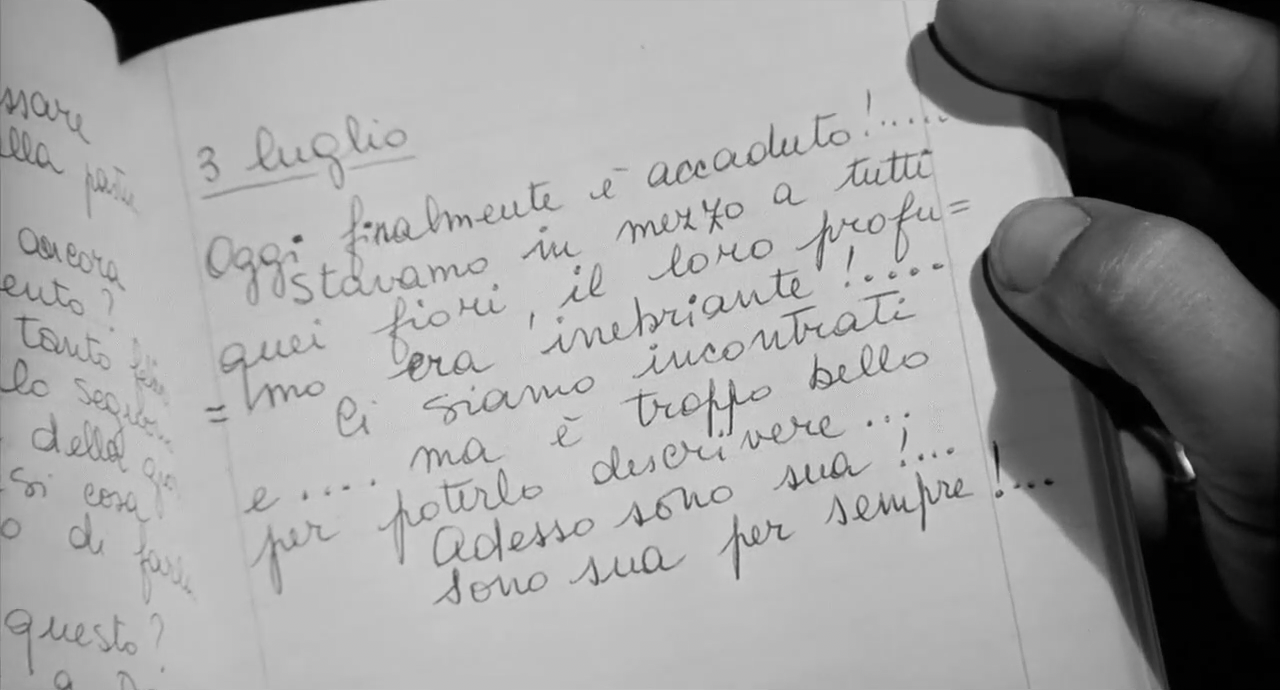 ssare
lla
ancora
ento?
tanto
lo
della
si cosa
o di
questo?
3 luglio
Oggi finalmente è accaduto!.....
stavamo in mezzo a tutti
quei fiori, il loro profu=
=mo era inebriante!....
Ci siamo incontrati
e .... ma è troppo bello
per poterlo descrivere...
Adesso sono sua!...
sono sua per sempre!...